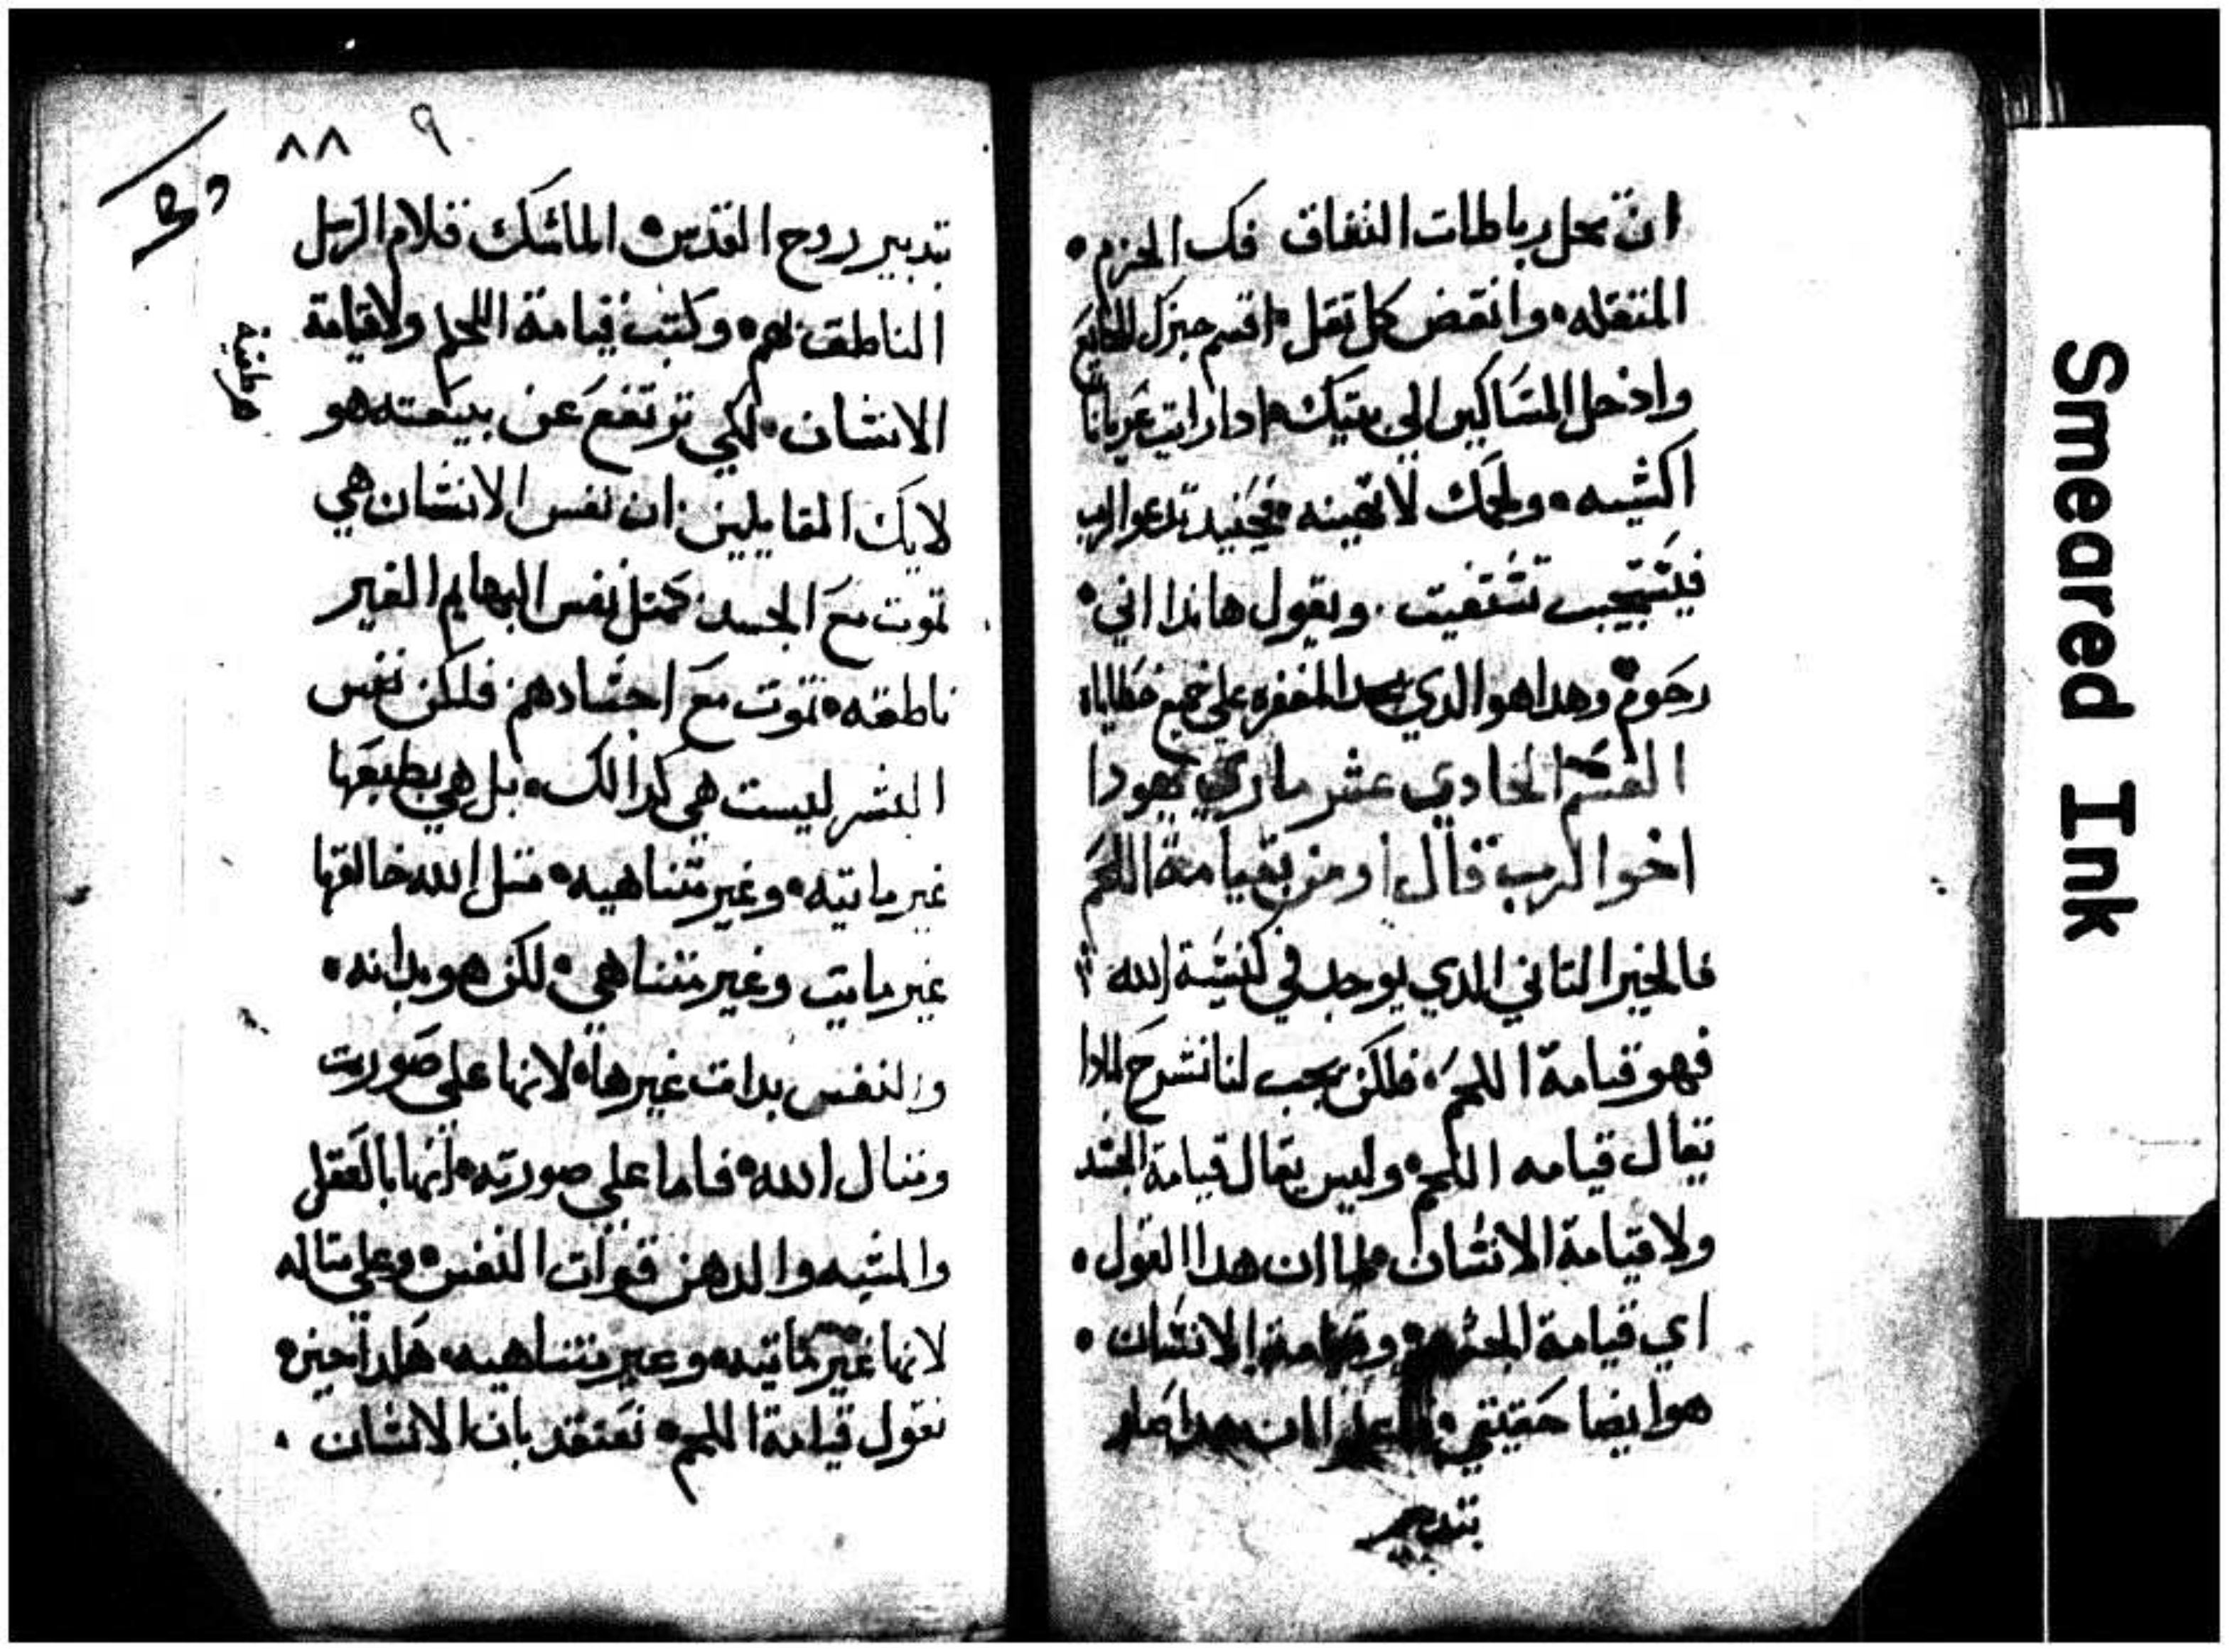 ان تحل رباطات النفاق فك الحزم •
المتقله • وانقض كل تقل • اقسم خبزك للجايع
وادخل المساكين الي بيتك • ادا رايت عريانا
اكسيه • ولحمك لا تهينه • فحينيد تدعوا الرب
فيستجيب تستغيت • ويقول هاندا اني •
رحوم • وهدا هو الدي المغفره علي جميع خطاياه
القسم الحادي عشر ماري يهودا
اخوا الرب قال اومن بقيامة اللحم
فالخير التاني الدي يوجد في كنيسة الله
فهو قيامة اللحم • فلكن يجب لنا نشرح لمادا
تقال قيامه اللحم • وليس يقال قيامة الجسد
ولا قيامة الانسان • طاان هدا القول •
اي قيامة الجسد • وقيامة الانسان •
هو ايضا حقيقي • ان هدا صار
بتدبير
٨٨ ٩
بتدبير روح القدس • الماسك قلام الرسل
الناطق بهم • وكتب قيامة اللحم ولا قيامة
الانسان • لكي ترتفع عن بيعته هو
لايك القايلين ان نفس الانسان هي
تموت مع الجسد كمتل نفس البهايم الغير
ناطقه • تموت مع اجسادهم فلكن نفس
البشر ليست هي كدالك • بل هي بطبعها
غير مايته • وغير متناهيه • متل الله خالقها
غير مايت وغير متناهي • لكن هو بداته •
والنفس بدات غيرها • لانها علي صورت
ومتال الله • فاما علي صورته • انها بالعقل
والمشيه والدهن قوات النفس • وعلي متاله
لانها غير مايته • وغير متناهيه • هكدا حين •
نقول قيامة اللحم • نعتقد بان الانسان •
هرطقية
Smeared Ink